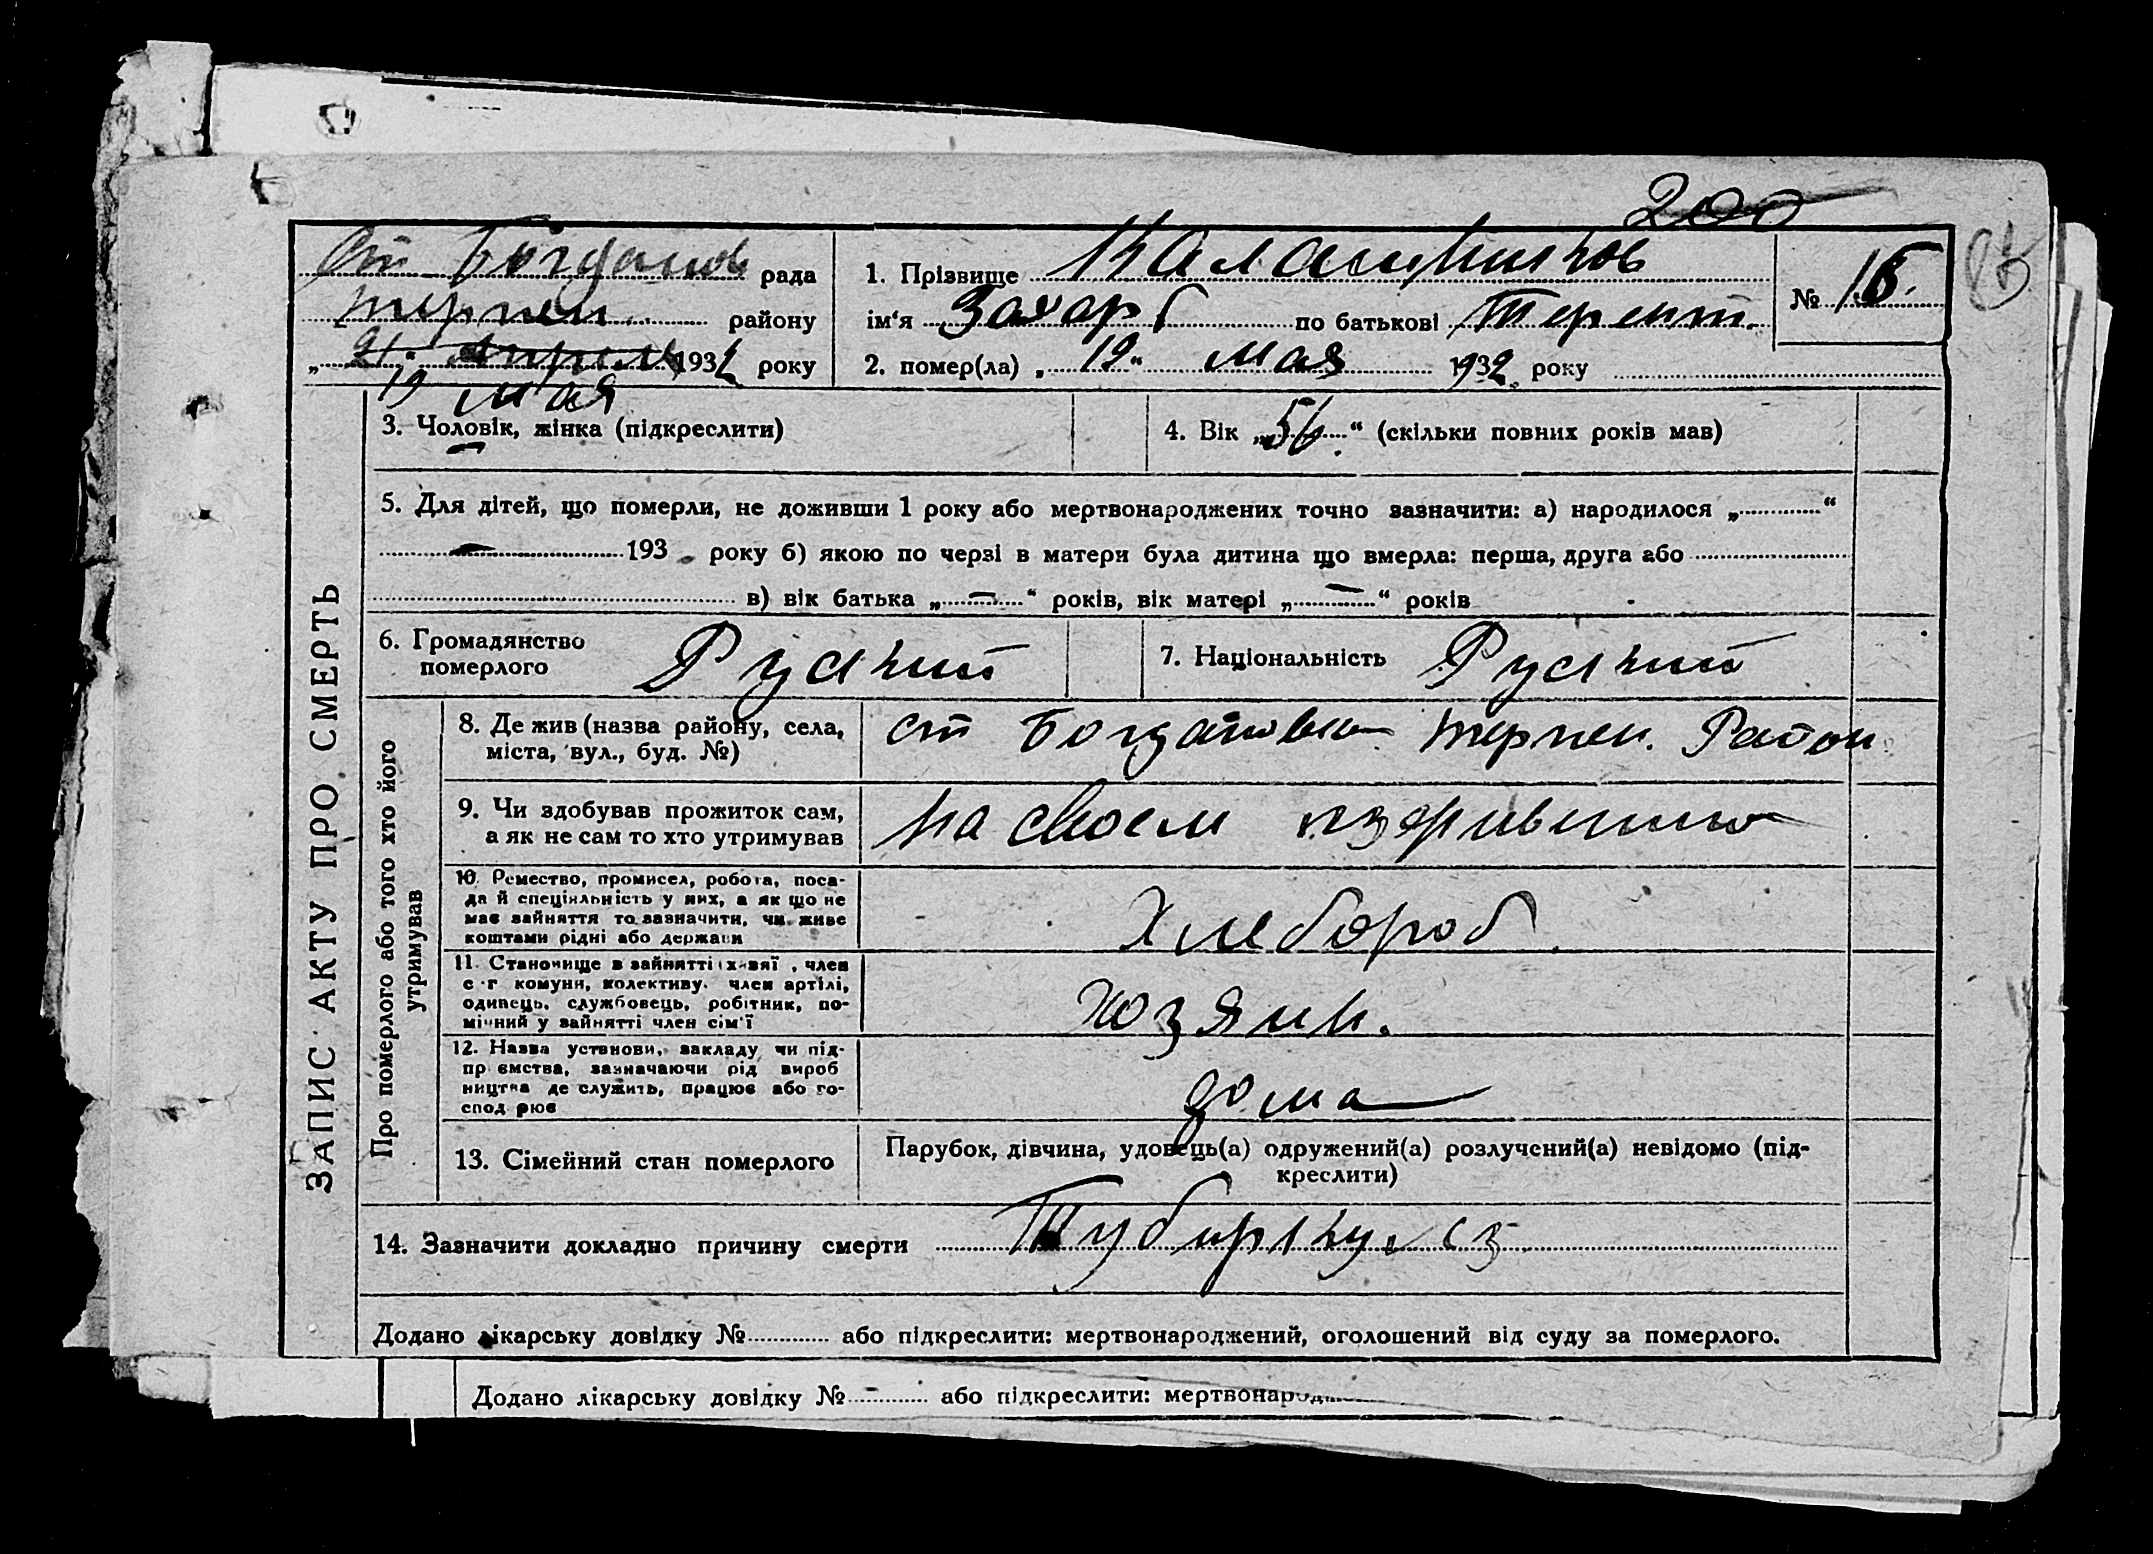 200
Ст Богданов рада
терпен. району
„21“ апреля 1932 року
19 мая
1. Прізвище Калашников
ім‘я Захар по батькові Терент.
2. помер(ла) „19“ мая 1932 року
№ 15.
ЗАПИС АКТУ ПРО СМЕРТЬ
3. Чоловік, жінка (підкреслити)
4. Вік „56“ (скільки повних років мав)
5. Для дітей, що померли, не доживши 1 року або мертвонароджених точно зазначити: а) народилося „ “
— 193 року б) якою по черзі в матери була дитина що вмерла: перша, друга або
в) вік батька „—“ років, вік матері „—“ років
6. Громадянство
померлого
Руский
7. Національність Руский
Про померлого або того хто його
утримував
8. Де жив (назва району, села,
міста, вул., буд. №)
ст Богдановка терпен. Район
9. Чи здобував прожиток сам,
а як не сам то хто утримував
на своем
10. Ремество, промисел, робота, поса-
да й спеціяльність у них, а як що не
має зайняття то зазначити, чи живе
коштами рідні або держави
Хлебороб.
11. Становище в зайнятті , член
с-г комуни, колективу, член артілі,
одинець, службовець, робітник, по-
мічний у зайнятті член сім‘ї
хозяин.
12. Назва установи, закладу чи під-
пр ємства, зазначаючи рід вироб
ництва де служить, працює або го-
спод рює
дома
13. Сімейний стан померлого
Парубок, дівчина, удовець(а) одружений(а) розлучений(а) невідомо (під-
креслити)
14. Зазначити докладно причину смерти Туберкулез
Додано лікарську довідку № або підкреслити: мертвонароджений, оголошений від суду за померлого.
Додано лікарську довідку № або підкреслити: